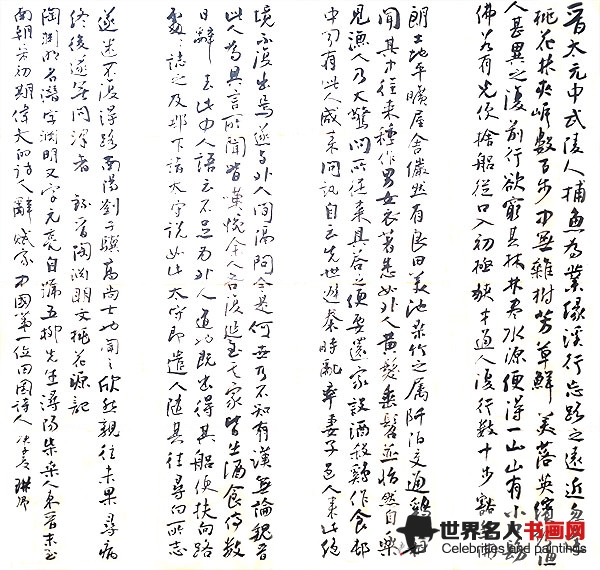 晋太元中武陵人捕魚為業緣溪行忘路之遠近忽逢
桃花林夾岸數百步中無雜樹芳草鮮美落英繽紛漁
人甚異之復前行欲窮其林林盡水源便得一山山有小口
佛若有光便捨船從口入初極狹才通人復行數十步豁然開
朗土地平曠屋舍儼然有良田美池桑竹之属阡陌交通雞犬相
聞其中往來種作男女衣著悉如外人黄髮垂髫並怡然自樂
見漁人乃大驚問所從來具答之便要還家設酒殺鷄作食村
中聞有此人咸來問訊自云先世避秦時亂率妻子邑人來此絕
境不復出焉遂与外人间隔問今是何世乃不知有漢無論魏晋
此人為具言所聞皆嘆惋余人各復延至其家皆出酒食停數
日辭去此中人語云不足為外人道也既出得其船便扶向路
處處誌之及郡下詣太守說如此太守即遣人隨其往尋向所志
遂迷不復得路南陽劉子驥高尚士也聞之欣然親往未果尋病
終後遂無問津者 錄晋陶渊明文桃花源記
陶渊明名潛字渊明又字元亮自號五柳先生潯陽柴桑人東晋末至
南朝宋初期偉大的詩人辭賦家中國第一位田園詩人
世界名人书画网
Celebrities and paintings